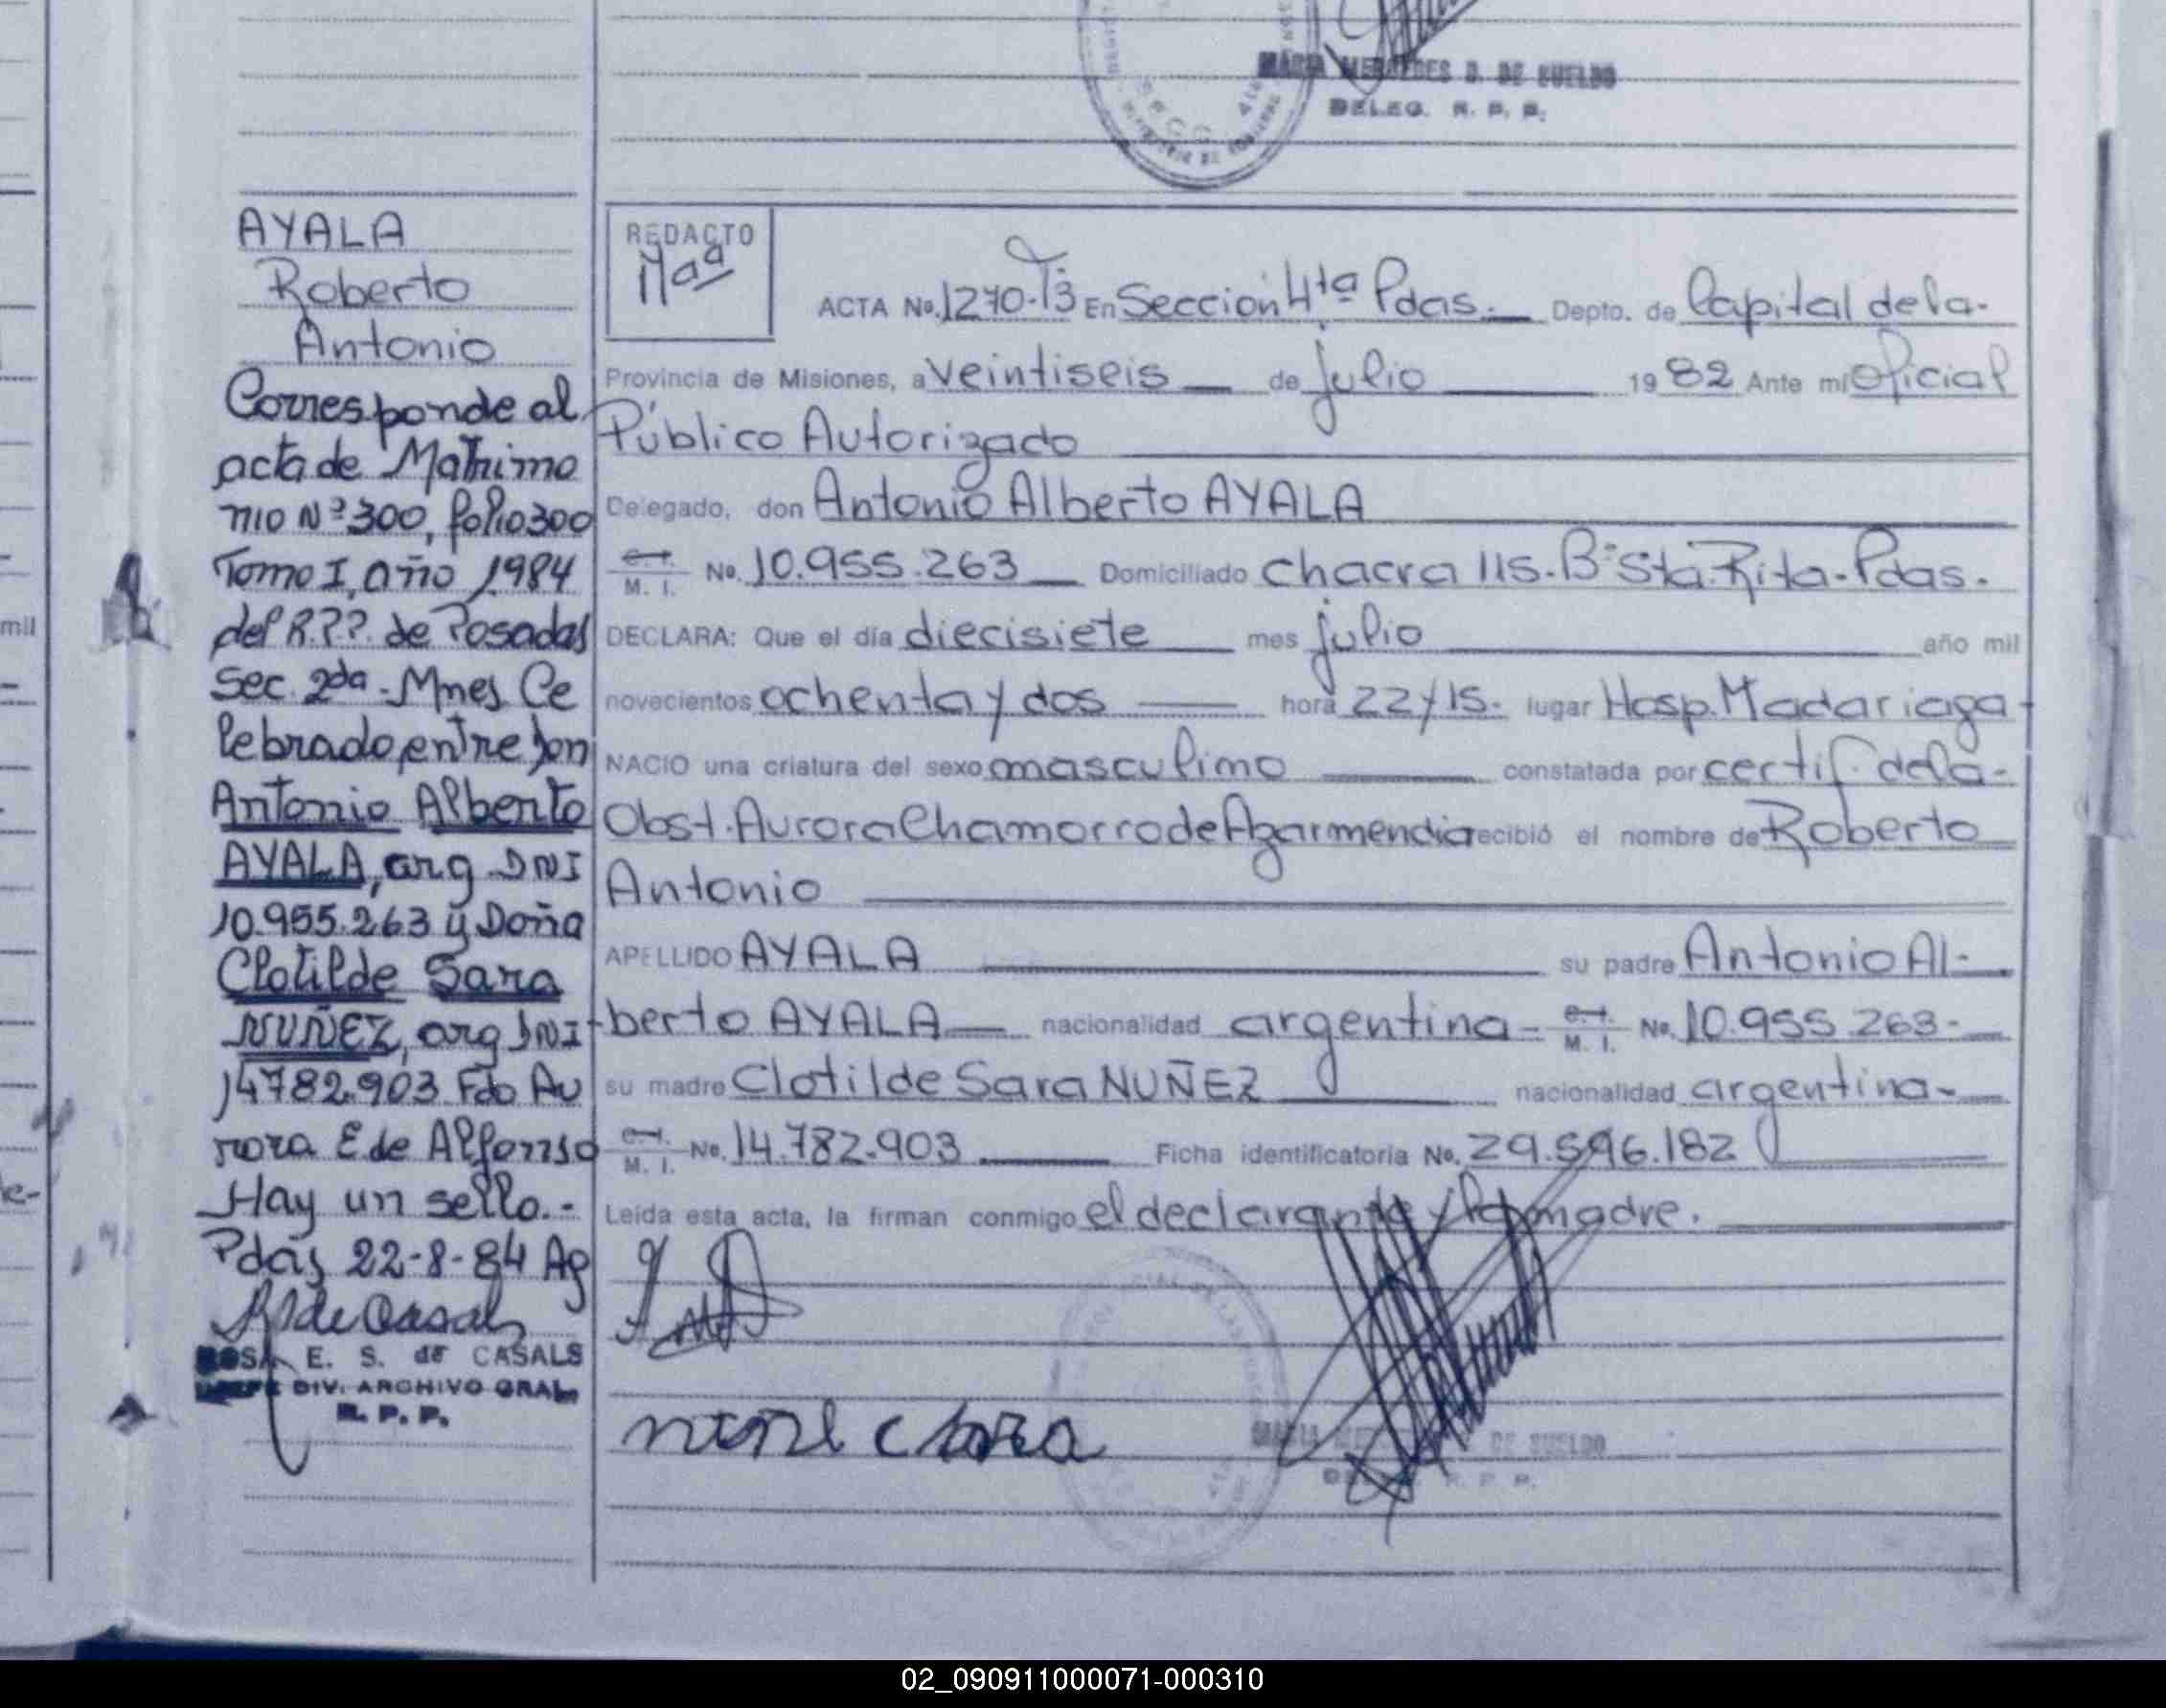 MARIA MERCEDES B. DE SUELDO
DELEG. R. P. P.
AYALA
Roberto
Antonio
Corresponde al
acta de Matrimo
nio Nº 300, folio 300
Tomo I, año 1984
del R.P.P. de Posadas
Sec. 2da - Mnes Ce
lebrado entre Don
Antonio Alberto
AYALA, arg. DNI
10.955.263 y Doña
Clotilde Sara
NUÑEZ, arg DNI
14782.903 Fdo Au
rora E de Alfonso
Hay un sello.-
Pdas 22-8-84 Ag
E. S. de CASALS
DIV. ARCHIVO GRAL
R. P. P.
REDACTO
ACTA No. 1270-T3 En Sección 4ta Pdas. Depto. de Capital de la-
Provincia de Misiones, a veintiseis de julio 1982 Ante mi Oficial
Público Autorizado
Delegado, don Antonio Alberto AYALA
M. I. No. 10.955.263 Domiciliado chacra 115-Bº Sta. Rita-Pdas.
DECLARA: Que el día diecisiete mes julio año mil
novecientos ochenta y dos hora 22/15- lugar Hosp. Madariaga-
NACIO una criatura del sexo masculino constatada por certif. de la-
Obst. Aurora Chamorro de Agarmendia recibió el nombre de Roberto
Antonio
APELLIDO AYALA su padre Antonio Al-
berto AYALA nacionalidad argentina- M. I. No. 10.955.263-
su madre Clotilde Sara NUÑEZ nacionalidad argentina-
M. I. No. 14.782.903 Ficha identificatoria No. 29.596.182
Leida esta acta, la firman conmigo el declarante y la madre.
DE SUELDO
R. P. P.
mil
02_090911000071-000310